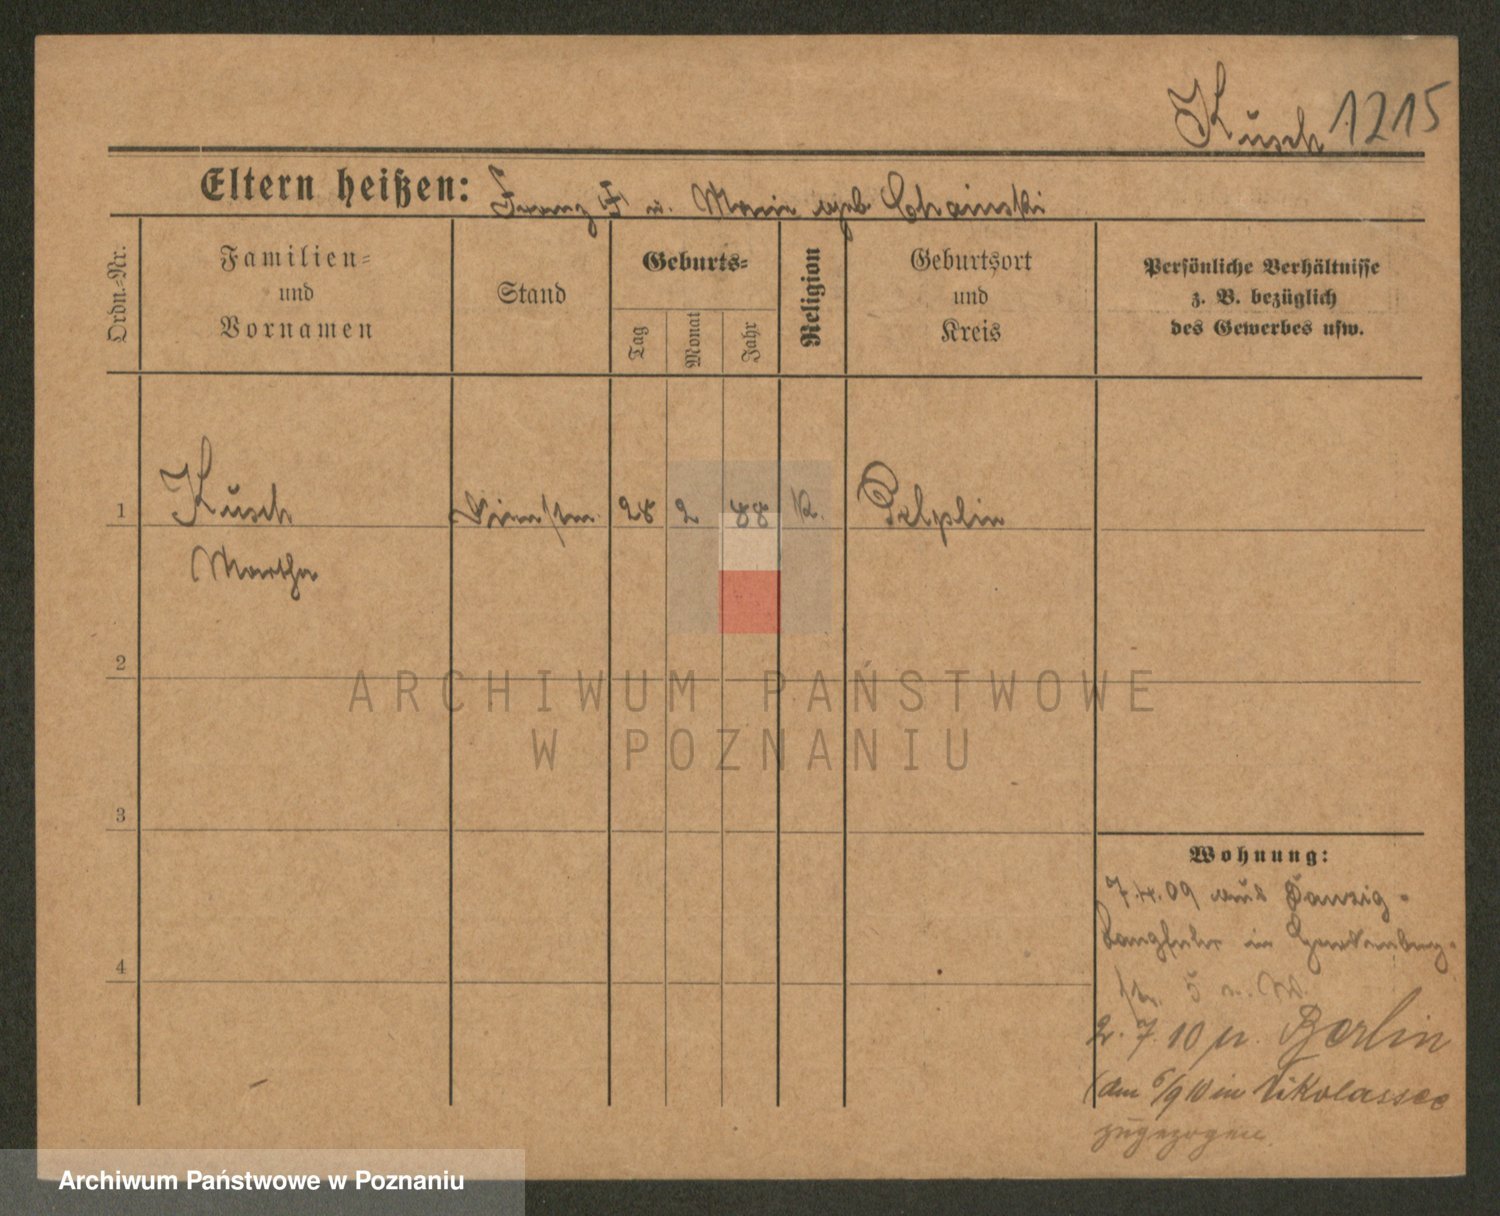 Kusch 1215
Eltern heißen: Franz F u. Marie geb. Chainski
Ordn.-Nr.
Familien-
und
Vornamen
Stand
Geburts-
Tag
Monat
Jahr
Religion
Geburtsort
und
Kreis
Persönliche Verhältnisse
z. B. bezüglich
des Gewerbes usw.
1 Kusch 28 2 88 K. Pelplin
Martha
2
ARCHIWUM PAŃSTWOWE
W POZNANIU
3
4
Wohnung:
7.4.09 aus Danzig-
Langfuhr in
5 n. W.
2.7.10 n. Berlin
(am 6/9 10 in Nikolassee
zugezogen.
Archiwum Państwowe w Poznaniu